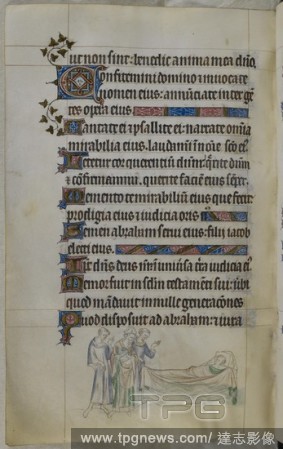 ut non sint: benedic anima mea dño.
Confitemini domino et invocate
nomen eius: annūciate inter gen
tes opera eius
Cantate ei et psallite ei: narrate omīa
mirabilia eius. laudamī in nōīe scō ei
Letetur cor querentiū dūm: q̄rite dūm
et confirmamini. querite faciē eius sēper.
Memento mirabiliū eius que fecit
prodigia eius et iudicia oris
Semen abraham servi eius: filii iacob
electi eius.
dñs deus in univsa tr̄a iudicia ei
Memor fuit in sclm testamēti sui: ūbi
quod mandavit in mille generacōnes
Quod disposuit ad abraham: et iura
TPG
www.tpgnews.com/達志影像